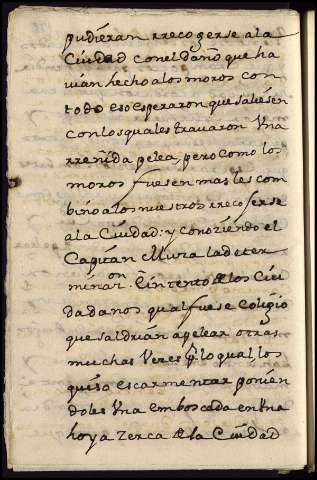 pudieran rrecogerse a la
Ciudad con el daño que ha
uian hecho a los moros con
todo eso esperaron que saliesen
con los quales trauaron Una
rreñida pelea, pero como los
moros fuesen mas les com
bino a los nuestros rrecoserse
a la Ciudad: y conoziendo el
Capitan Muza la deter
minaᵒⁿ. E intento de los Ciu
dadanos qual fuese Coligio
que saldrian a pelear otras
muchas Vezes p̃ lo qual los
quiso escarmentar ponien
doles Una emboscada en Una
hoya zerca de la Ciudad